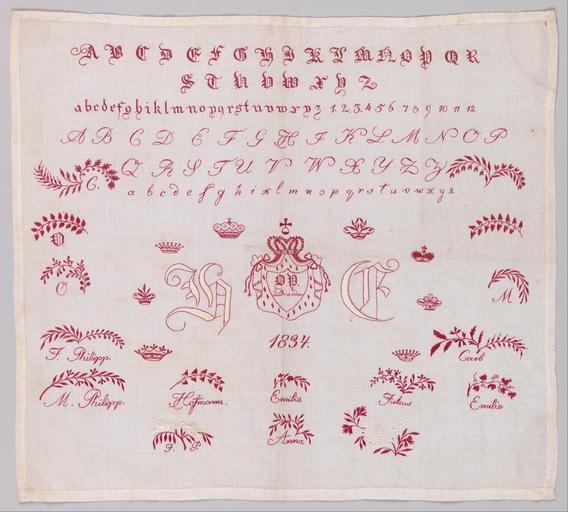 A B C D E F G H I K L M N O P Q R
S T U V W X Y Z
a b c d e f g h i k l m n o p q r s t u v w x y z 1. 2. 3. 4. 5 6 7 8 9 10 11 12
A B C D E F G H I K L M N O P
Q R S T U V W X Y Z
C.
a b c d e f g h i k l m n o p q r s t u v w x y z
H E
O
M
1834.
F. Philipp.
Carl
M. Philipp.
Hofmann.
Emilie
Julius
Emilie
F. P.
Anna